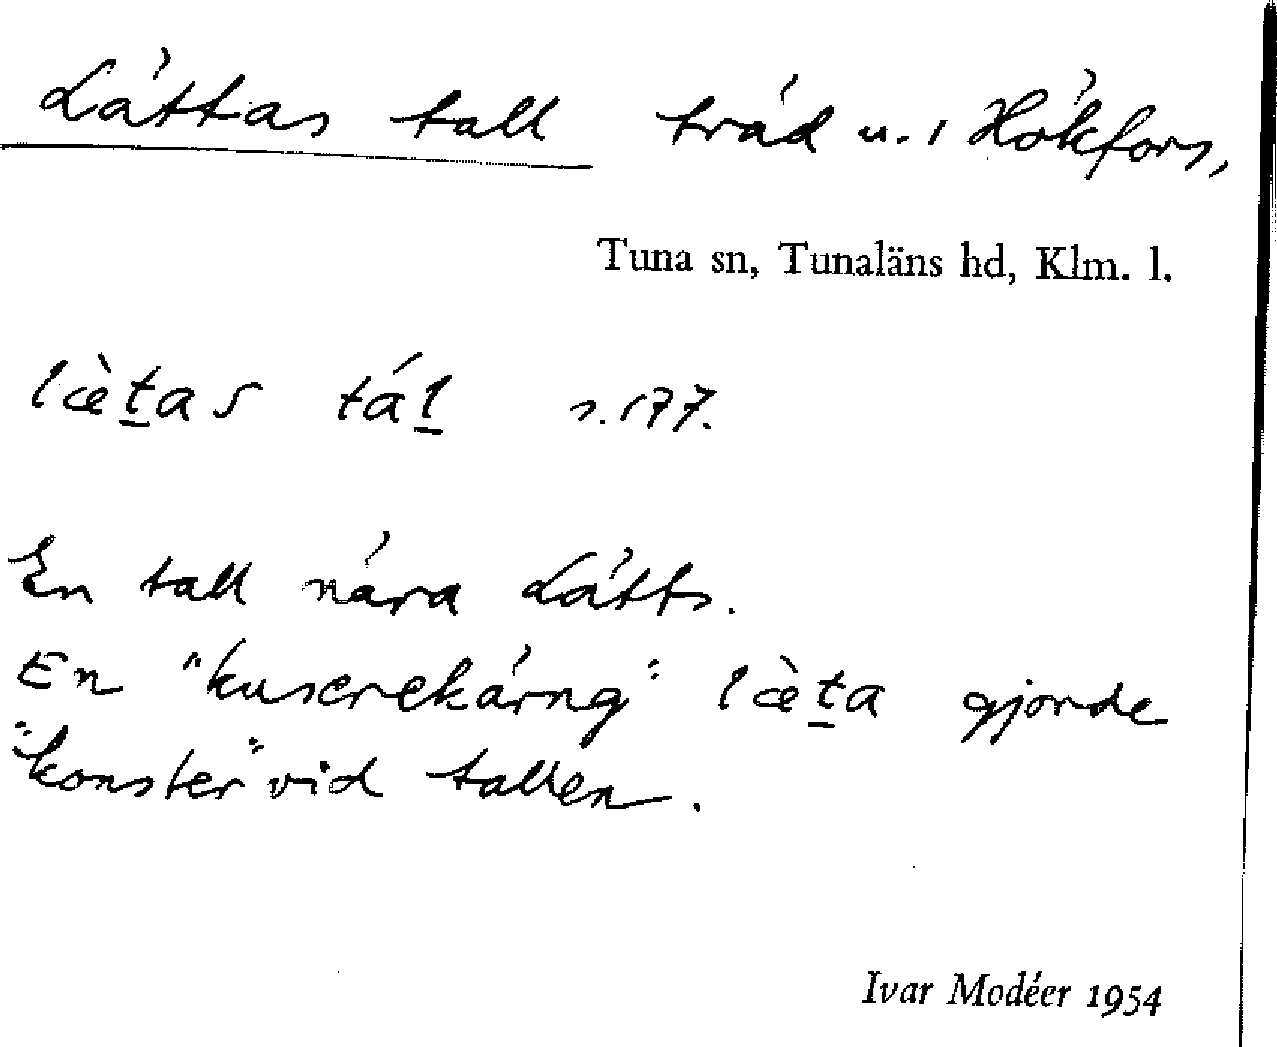 Lättas tall träd u. i Hökfors,
Tuna sn, Tunaläns hd, Klm. l.
læ̀t̲as tál̲ s. 177.
En tall nära Lätts.
En "kuserekärng" læ̀t̲a gjorde
"konster" vid tallen.
Ivar Modéer 1954